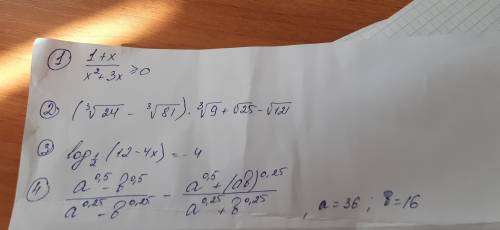 1) (1+x)/(x²+3x) ≥ 0
2) (∛24 - ∛81) · ∛9 + √25 - √121
3) log_{1/2} (12-4x) = -4
4) (a^{0,5} - b^{0,5})/(a^{0,25} - b^{0,25}) - (a^{0,5} + (ab)^{0,25})/(a^{0,25} + b^{0,25}) , a=36 ; b=16